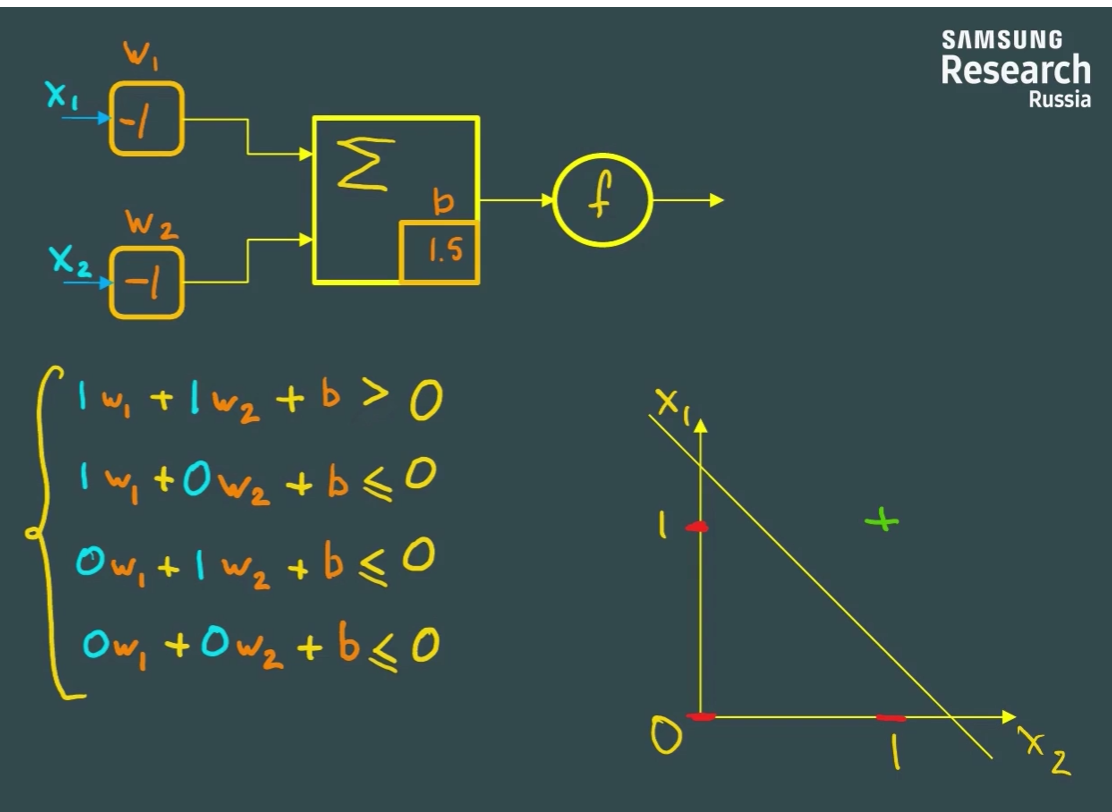 SAMSUNG
Research
Russia
w₁
x₁
-1
Σ
b
1.5
f
w₂
x₂
-1
1w₁ + 1w₂ + b > 0
1w₁ + 0w₂ + b ⩽ 0
0w₁ + 1w₂ + b ⩽ 0
0w₁ + 0w₂ + b ⩽ 0
x₁
1
+
0
1
x₂